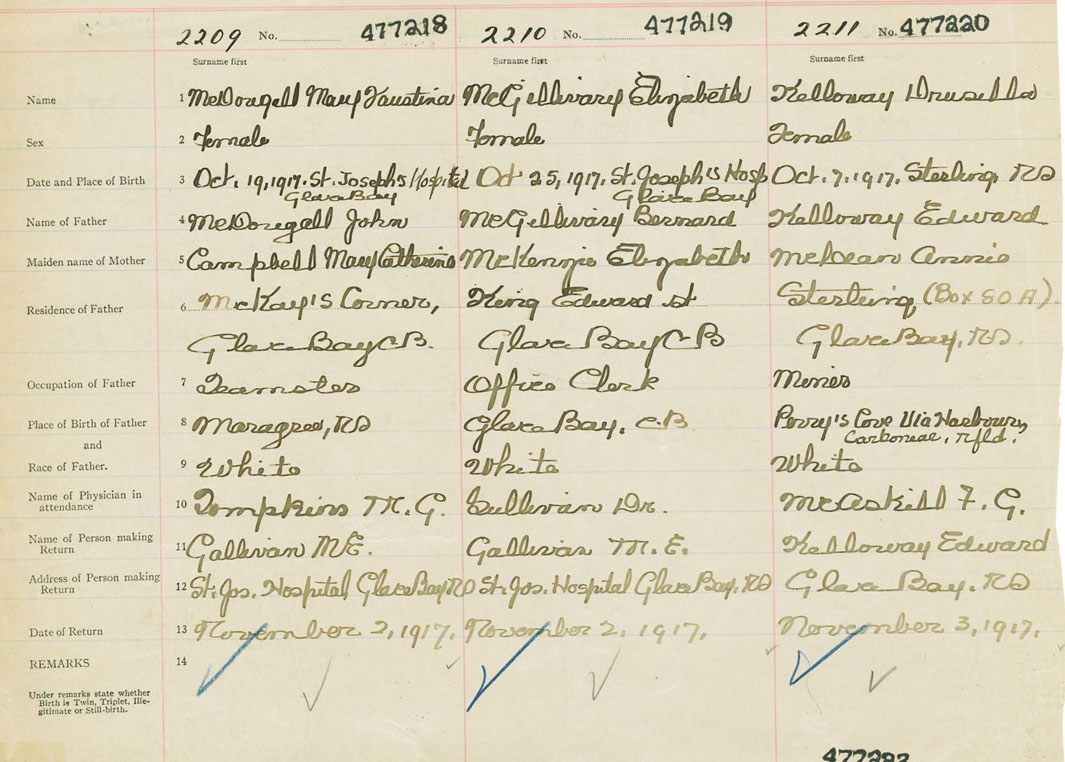 2209 No. 477218 2210 No. 477219 2211 No. 477220
Surname first Surname first Surname first
Name 1 McDougall Mary Faustina McGillivary Elizabeth Kelloway Drusilla
Sex 2 Female Female Female
Date and Place of Birth 3 Oct. 19, 1917. St. Joseph's Hospital Oct 25, 1917. St. Joseph's Hosp Oct. 7. 1917. Sterling, RD
Glace Bay Glace Bay
Name of Father 4 McDougall John McGillivary Bernard Kelloway Edward
Maiden name of Mother 5 Campbell Mary Catherine McKenzie Elizabeth McLean Annie
Residence of Father 6 McKay's Corner, King Edward st Sterling (Box 80 A).
Glace Bay CB. Glace Bay CB Glace Bay, RD.
Occupation of Father 7 Teamster Office Clerk Miner
Place of Birth of Father 8 Margaree, RD Glace Bay, CB Perry's Cove Via Harbour,
and Carbonear, Nfld.
Race of Father. 9 White White White
Name of Physician in attendance 10 Tompkins M. G. Sullivan Dr. McAskill F. G.
Name of Person making Return 11 Gallivan M E. Gallivan M. E. Kelloway Edward
Address of Person making Return 12 St. Jos. Hospital Glace Bay RD St. Jos. Hospital Glace Bay, RD Glace Bay. RD
Date of Return 13 November 2, 1917. November 2, 1917. November 3, 1917.
REMARKS 14
Under remarks state whether
Birth is Twin, Triplet, Ille-
gitimate or Still-birth.